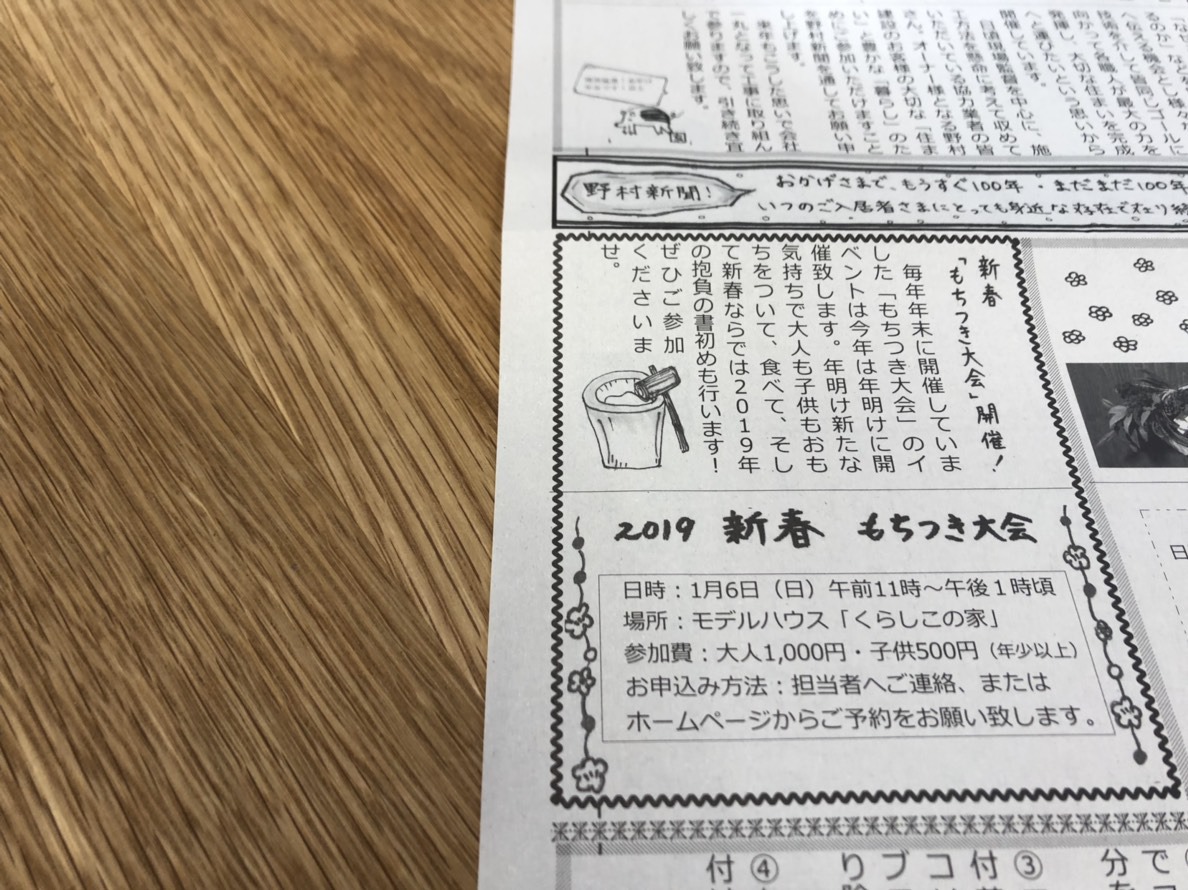 技術を介して皆同じゴールに
向かって各職人が最大の力を
発揮し、大切な住まいを完成
へと運びたいという思いから
開催しています。
日頃現場監督を中心に、施
工方法を懸命に考えて収めて
いただいている協力業者の皆
さん、オーナー様となる野村
建設のお客様の大切な「住ま
い」と豊かな「暮らし」のた
めにご参加いただけますこと
を野村新聞を通してお願い申
し上げます。
来年もこうした思いで会社
一丸となって工事に取り組ん
で参りますので、引き続き宜
しくお願い致します。
野村新聞!
おかげさまで、もうすぐ100年・まだまだ100年
いつのご入居者さまにとっても身近な存在で在り続
新春
「もちつき大会」開催!
毎年年末に開催していま
した「もちつき大会」のイ
ベントは今年は年明けに開
催致します。年明け新たな
気持ちで大人も子供もおも
ちをついて、食べて、そし
て新春ならでは2019年
の抱負の書初めも行います!
ぜひご参加
くださいま
せ。
2019 新春 もちつき大会
日時:1月6日(日)午前11時~午後1時頃
場所:モデルハウス「くらしこの家」
参加費:大人1,000円・子供500円(年少以上)
お申込み方法:担当者へご連絡、または
ホームページからご予約をお願い致します。
日
で
分
③
付
コ
ブ
り
④
付